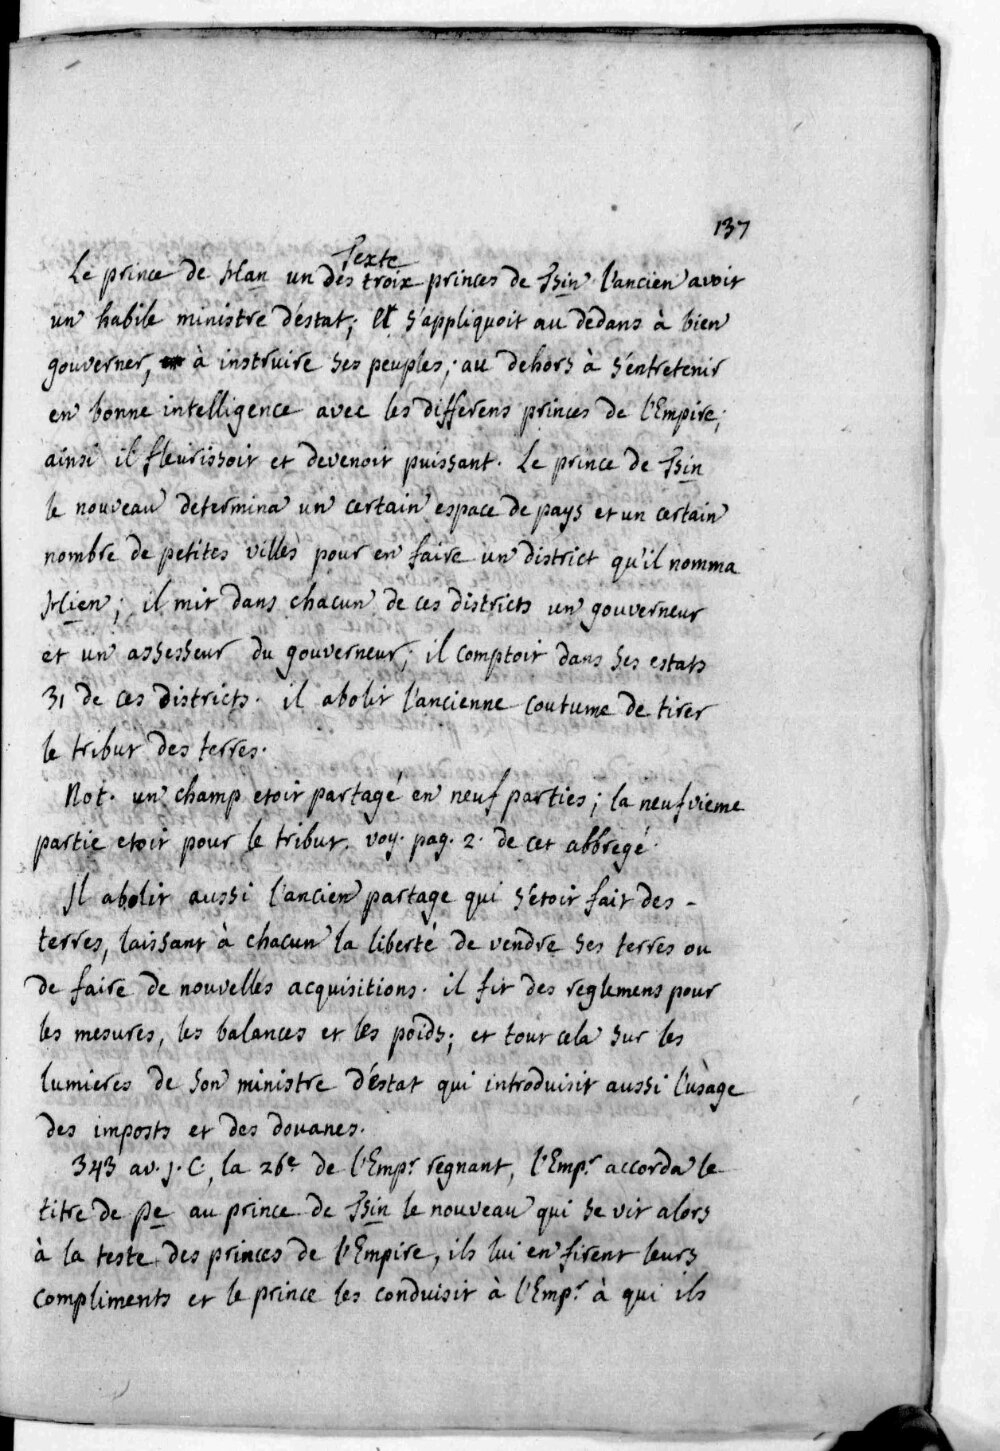 137
Texte
Le prince de Han un des troix princes de Tsin l'ancien avoit
un habile ministre d'éstat; il s'appliquoit au dedans à bien
gouverner, à instruire ses peuples; au dehors à s'éntretenir
en bonne intelligence avec les differens princes de l'Empire;
ainsi il fleurissoit et devenoit puissant. Le prince de Tsin
le nouveau détermina un certain espace de pays et un certain
nombre de petites villes pour en faire un district qu'il nomma
Hien; il mit dans chacun de ces districts un gouverneur
et un assesseur du gouverneur; il comptoit dans ses estats
31 de ces districts. il abolit l'ancienne coutume de tirer
le tribut des terres.
Not. un champ etoit partagé en neuf parties; la neufvieme
partie etoit pour le tribut. voy. pag. 2. de cet abbregé.
Il abolit aussi l'ancien partage qui s'etoit fait des -
terres, laissant à chacun la liberté de vendre ses terres ou
de faire de nouvelles acquisitions. il fit des reglemens pour
les mesures, les balances et les poids; et tout cela sur les
lumieres de son ministre d'éstat qui introduisit aussi l'usage
des imposts et des douanes.
343 av. J. C., la 26e de l'Empr regnant, l'Empr accorda le
titre de Pe au prince de Tsin le nouveau qui se vit alors
à la teste des princes de l'Empire, ils lui en firent leurs
compliments et le prince les conduisit à l'Empr à qui ils